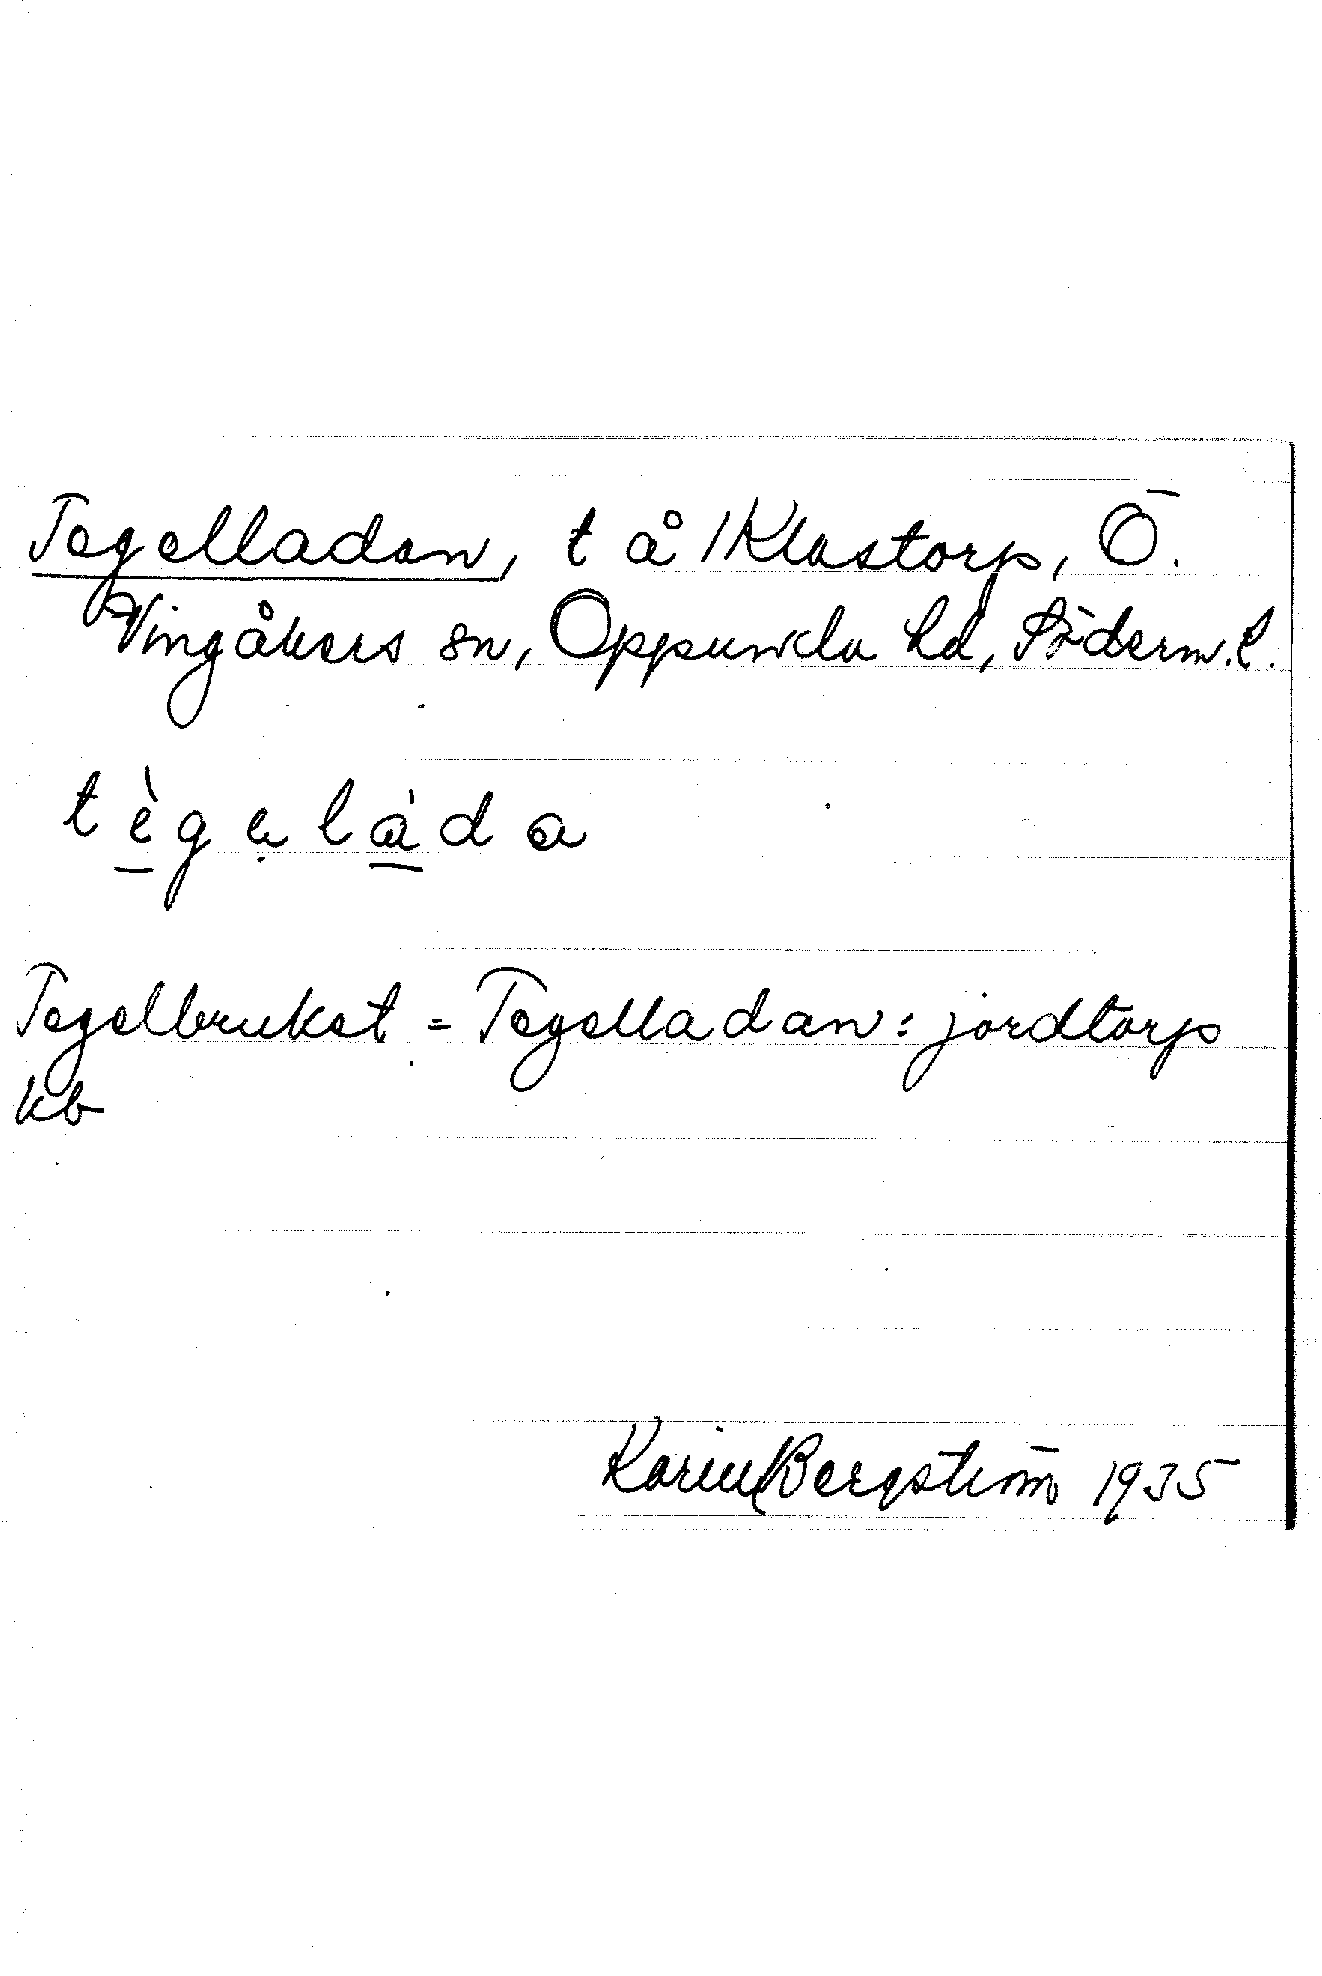 Tegelladan, t å Klastorp, Ö.
Vingåkers sn, Oppunda hd, Söderm. l.
tègeládа
Tegelbruket = Tegelladan: jordtorp
kb
Karin Bergström 1935